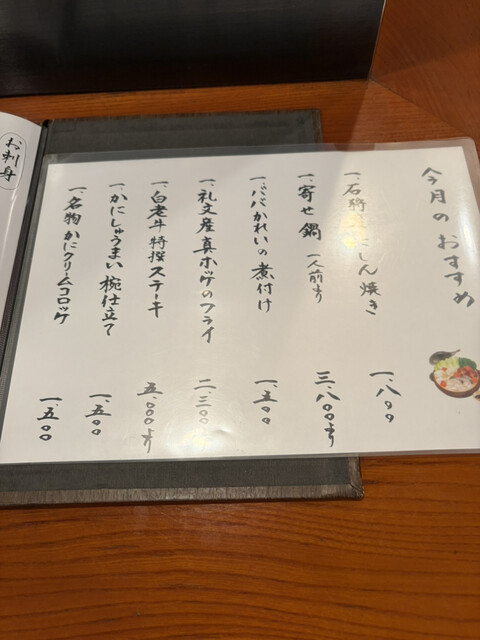 今月のおすすめ
一、石狩 にしん焼き 一、八〇〇
一、寄せ鍋 一人前より 三、八〇〇より
一、ババかれいの煮付け 一、五〇〇
一、礼文産真ホッケのフライ 二、三〇〇
一、白老牛特撰ステーキ 五、〇〇〇より
一、かにしゅうまい椀仕立て 一、五〇〇
一、名物かにクリームコロッケ 一、五〇〇
お刺身